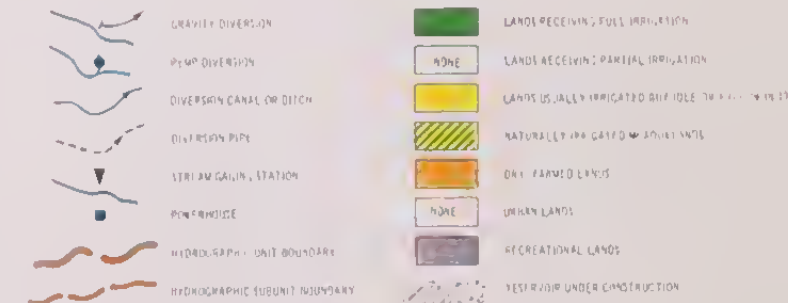 GRAVITY DIVERSION
PUMP DIVERSION
DIVERSION CANAL OR DITCH
DIVERSION PIPE
STREAM GAGING STATION
POWERHOUSE
HYDROGRAPHIC UNIT BOUNDARY
HYDROGRAPHIC SUBUNIT BOUNDARY
LANDS RECEIVING FULL IRRIGATION
NONE LANDS RECEIVING PARTIAL IRRIGATION
LANDS USUALLY IRRIGATED BUT IDLE OR IN
NATURALLY IRRIGATED MEADOWLANDS
DRY FARMED LANDS
NONE URBAN LANDS
RECREATIONAL LANDS
RESERVOIR UNDER CONSTRUCTION